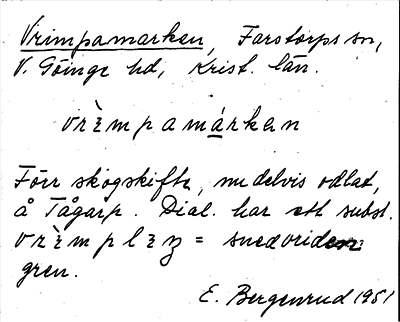 Vrimpamarken, Farstorps sn,
V. Göinge hd, Krist. län.
vrìmpamárkan
Förr skogskifte, nu delvis odlat,
å Tågarp. Dial. har ett subst.
= snedvriden
gren.
E. Bergenrud 1951